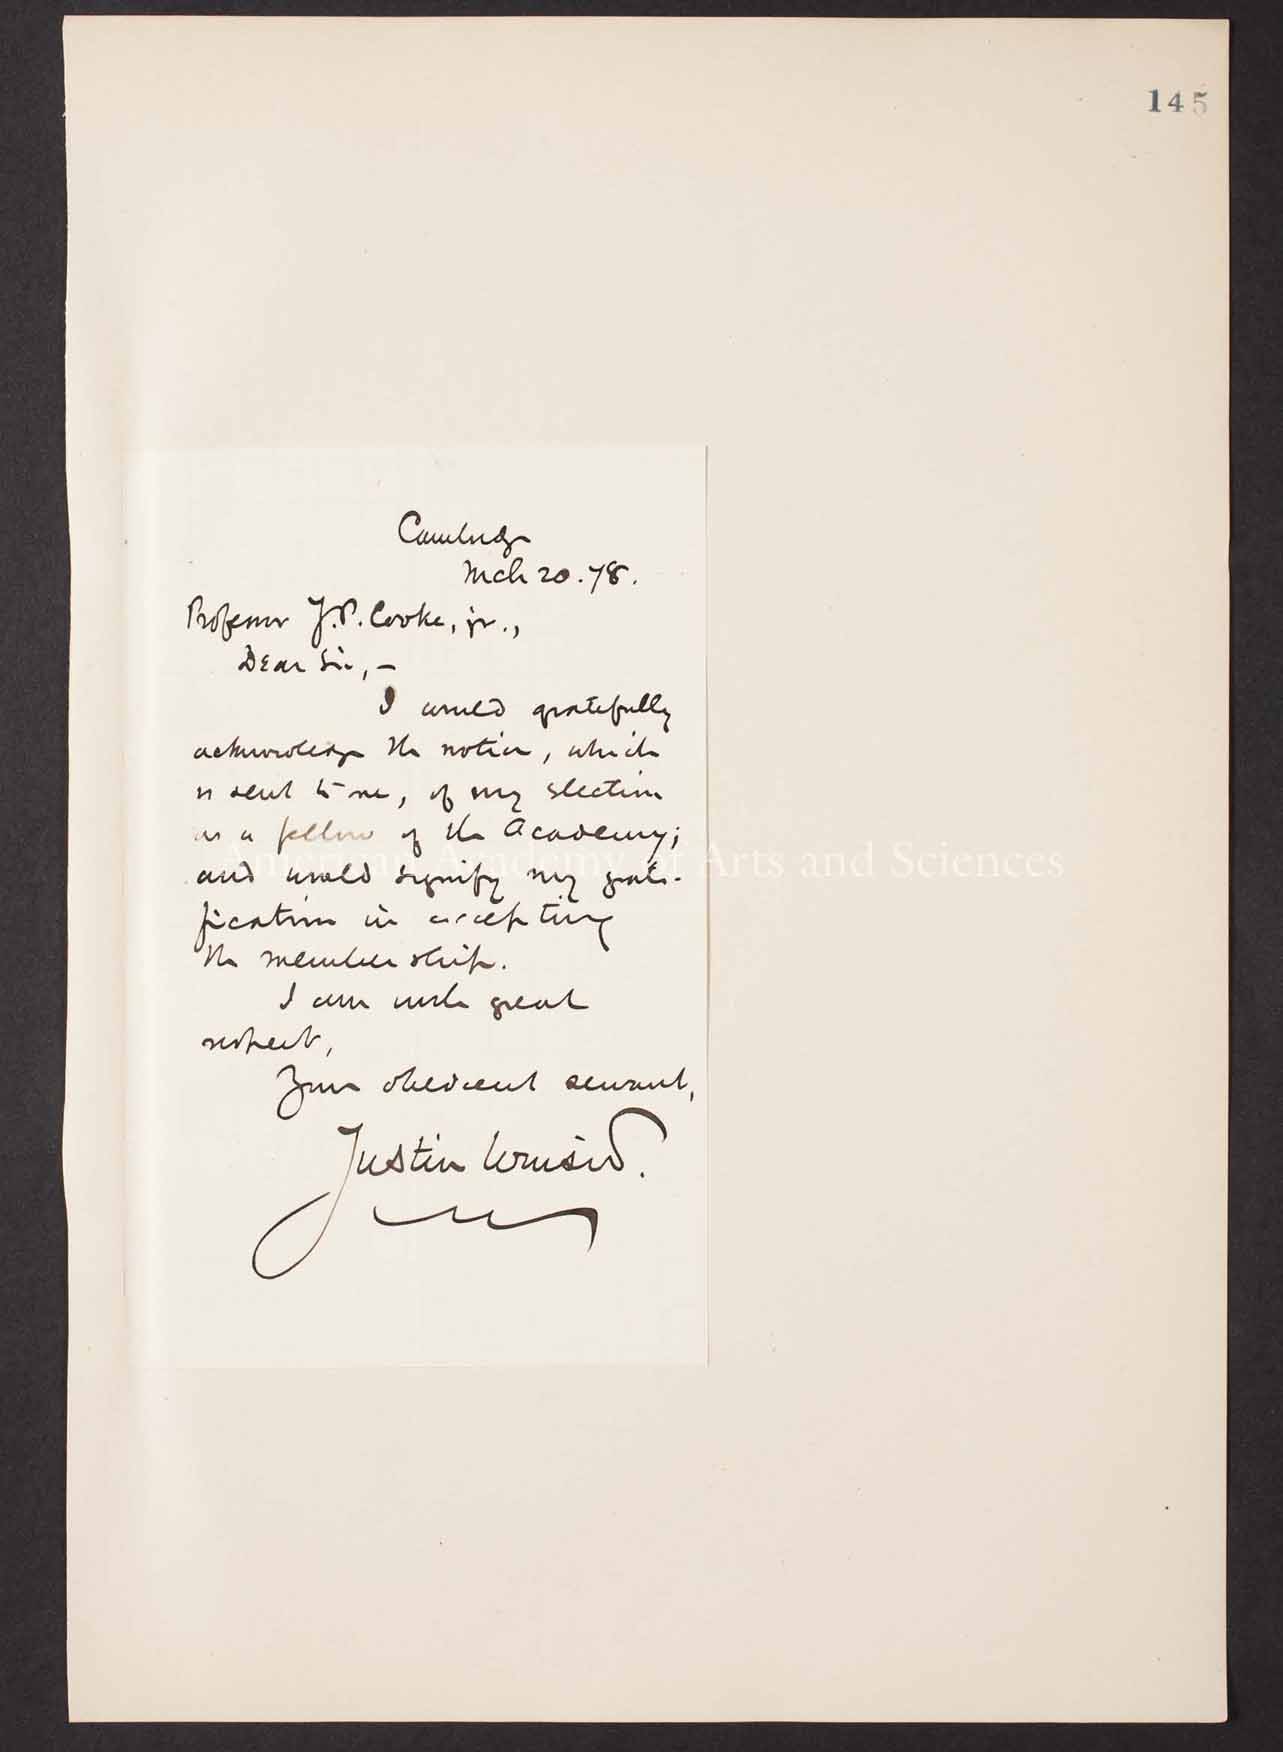 145
Cambridge
Mch 20. 78.
Professor J. P. Cooke, jr.,
Dear Sir, —
I would gratefully
acknowledge the notice, which
is sent to me, of my election
as a fellow of the Academy;
and would signify my grati-
fication in accepting
the membership.
I am with great
respect,
Your obedient servant,
Justin Winsor.
American Academy of Arts and Sciences